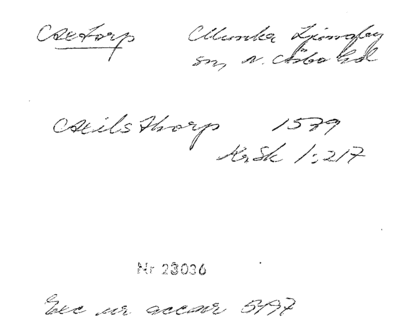 Axtorp Munka Ljungby
sn, N. Åsbo hd
Axilsthorp 1579
KrSk 1:217
Nr 23036
Exc ur accar 5/97